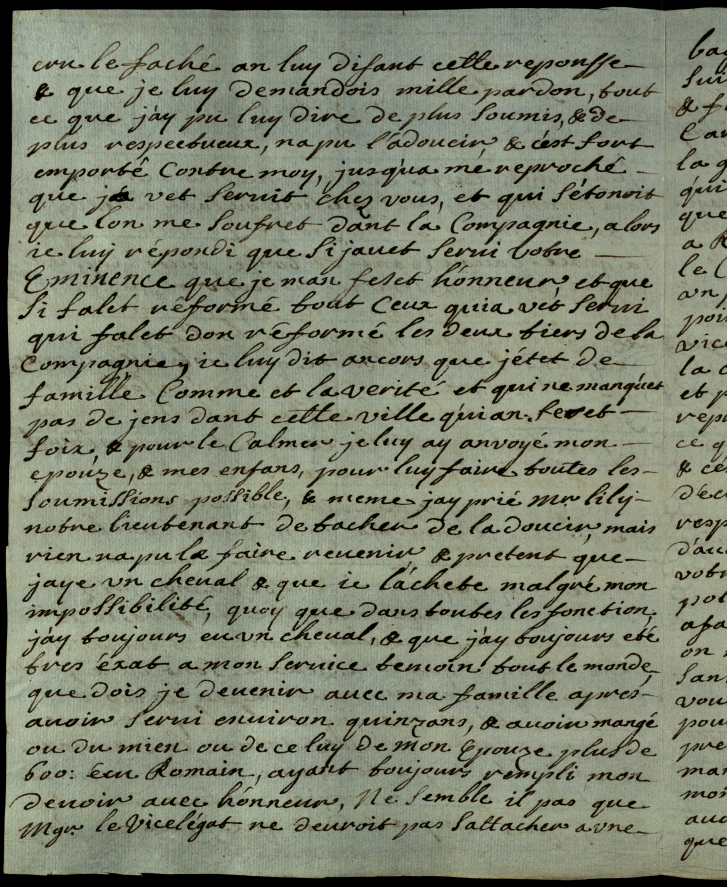 cru le faché an luy disant cette reponsse
& que je luy demandois mille pardon, tout
ce que jay pu luy dire de plus soumis, & de
plus respectueux, na pu l'adoucir, & c'est fort
emporté Contre moy, jusqua me reproché
que ja vet servit chez vous, et qui s'étonoit
que lon me soufret dant la Compagnie, alors
ie luy répondi que si javet servi votre
Eminence que je man feset hónneur, et que
si falet réformé tout Ceux quia vet servi
qui falet don réformé les deux tiers de la
Compagnie, ie luy dit ancors que jétet de
famille Comme et la verité et qui ne manquet
pas de jens dant cette ville qui an feset
foix, & pour le Calmer je luy ay anvoyé mon
epouze, & mes enfans, pour luy faire toutes les
soumissions possible, & meme jay prié Mr lily
notre lieutenant de tacher de la doucir, mais
rien na pu la faire revenir & pretent que
jaye un cheval & que ie láchete malgré mon
impossibilité, quoy que dans toutes les fonction
j'ay toujours eu un cheval, & que j'ay toujours eté
tres éxat a mon service temoin tout le monde,
que dois je devenir avec ma famille apres
avoir servi environ quinzans, & avoir mangé
ou du mien ou de celuy de mon Epouze plus de
600: ecu Romain, ayant toujours rempli mon
devoir avec hónneur, Ne semble il pas que
Mgr. le Vicelégat ne devroit pas sattacher a une
sur
la
qui
que
a
le
an
vice
la
et
ce